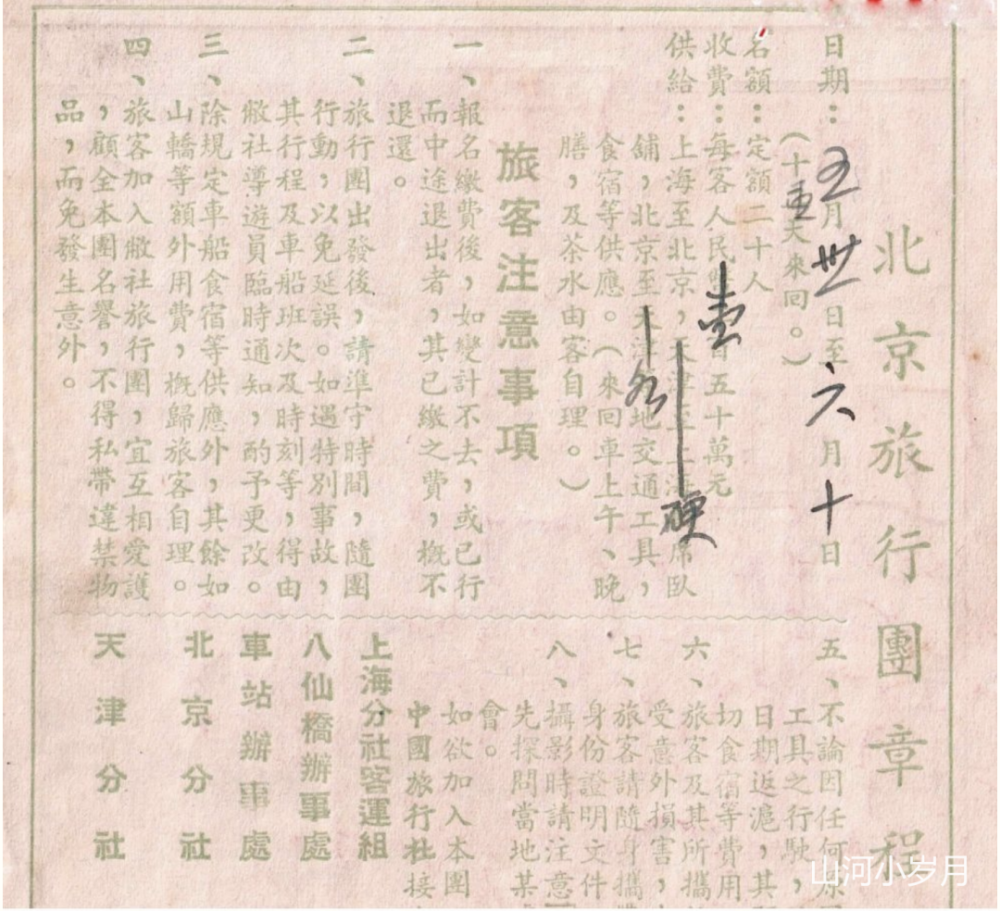 北京旅行團章程
日期：五月卅一日至六月十日
（十天來回。）
名額：定額二十人
收費：每客人民幣壹百五十萬元
供給：上海至北京，天津至上海硬席臥
舖，北京至天津地交通工具，
食宿等供應。（來回車上午、晚
膳，及茶水由客自理。）
旅客注意事項
一、報名繳費後，如變計不去，或已行
而中途退出者，其已繳之費，概不
退還。
二、旅行團出發後，請準守時間，隨團
行動，以免延誤。如遇特別事故，
其行程及車船班次及時刻等，得由
敝社導遊員臨時通知，酌予更改。
三、除規定車船食宿等供應外，其餘如
山轎等額外用費，概歸旅客自理。
四、旅客加入敝社旅行團，宜互相愛護
，顧全本團名譽，不得私帶違禁物
品，而免發生意外。
五、不論因任何原
工具之行駛，
日期返滬，其
切食宿等費用
六、旅客及其所攜
受意外損害，
七、旅客請隨身攜
身份證明文件
八、攝影時請注意
先探問當地某
會。
如欲加入本團
中國旅行社接
上海分社客運組
八仙橋辦事處
車站辦事處
北京分社
天津分社
山河小岁月